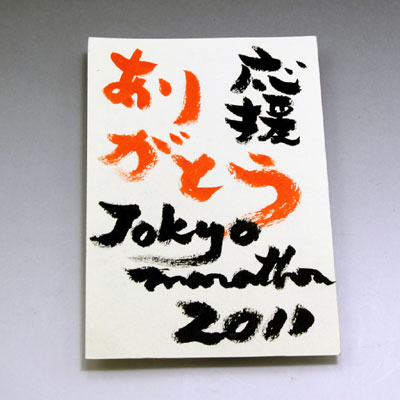 応援
ありがとう
Tokyo
marathon
2011